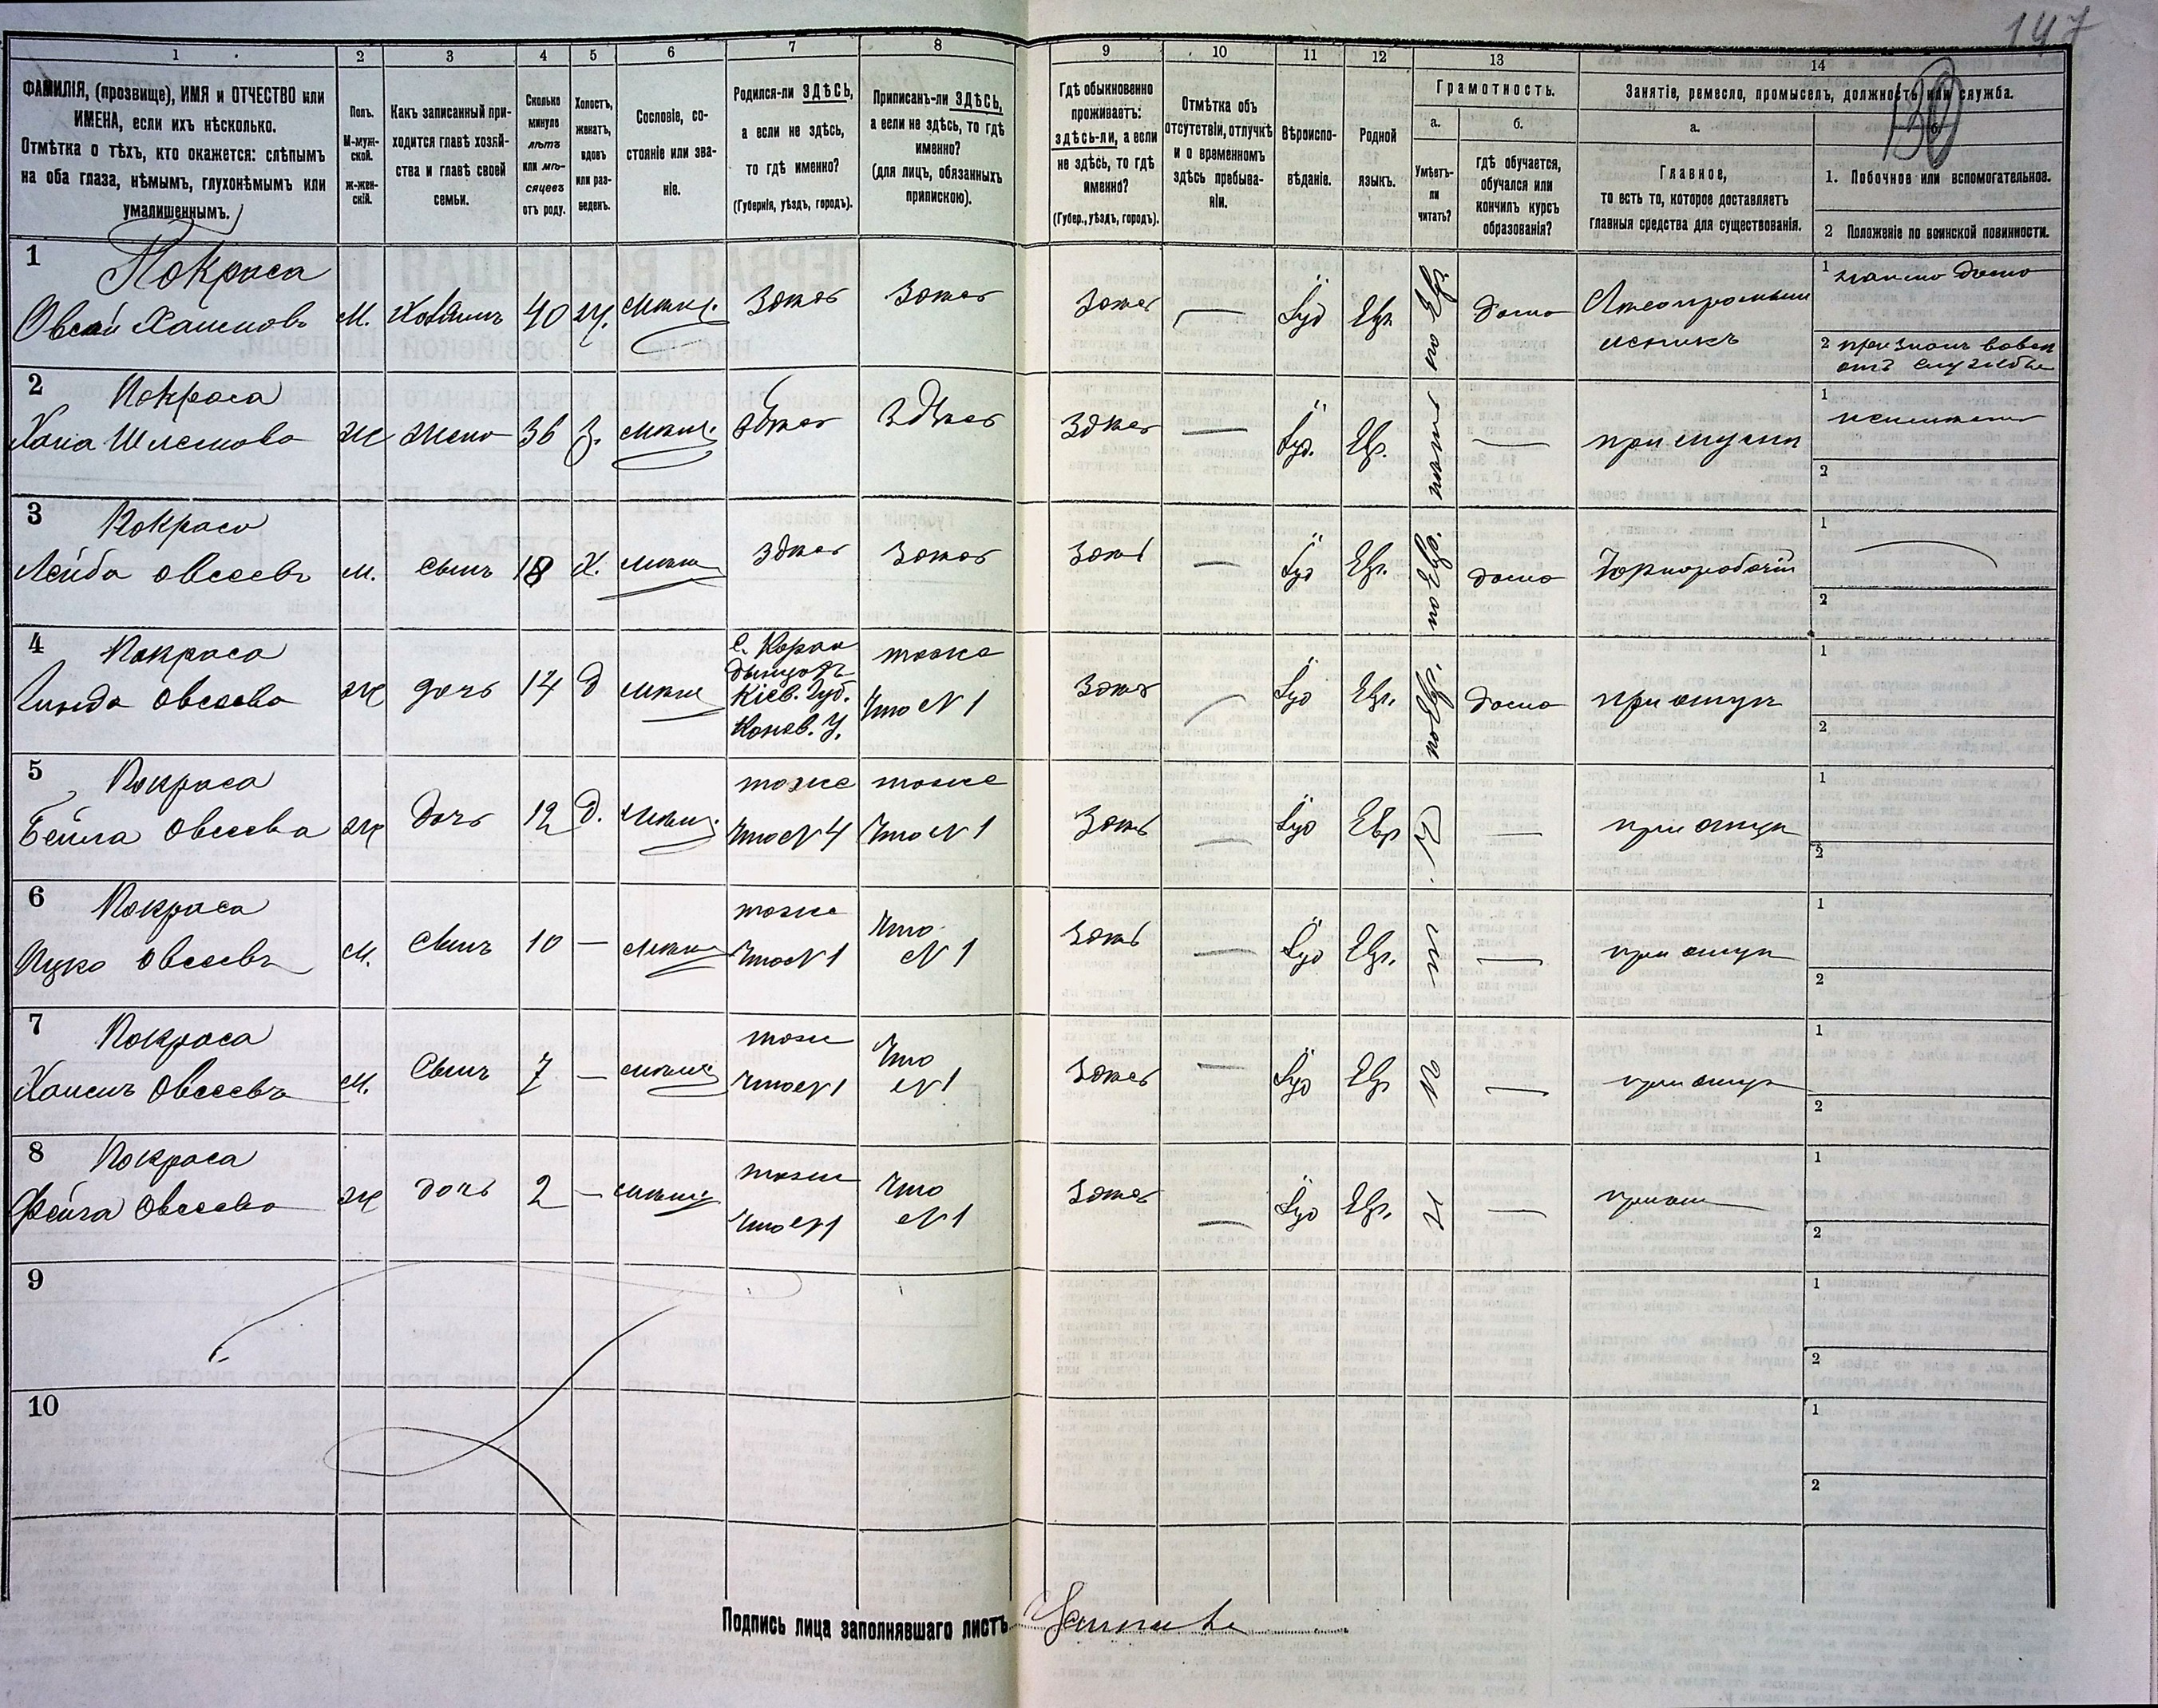 147
130
1
2
3
4
5
6
7
8
9
10
11
12
13
14
ФАМИЛІЯ, (прозвище), ИМЯ и ОТЧЕСТВО или
ИМЕНА, если ихъ нѣсколько.
Отмѣтка о тѣхъ, кто окажется: слѣпымъ
на оба глаза, нѣмымъ, глухонѣмымъ или
умалишеннымъ.
Полъ.
М-муж-
ской.
ж-жен-
скій.
Какъ записанный при-
ходится главѣ хозяй-
ства и главѣ своей
семьи.
Сколько
минуло
лѣтъ
или мѣ-
сяцевъ
отъ роду.
Холостъ,
женатъ,
вдовъ
или раз-
веденъ.
Сословіе, со-
стояніе или зва-
ніе.
Родился-ли ЗДѢСЬ,
а если не здѣсь,
то гдѣ именно?
(Губернія, уѣздъ, городъ).
Приписанъ-ли ЗДѢСЬ,
а если не здѣсь, то гдѣ
именно?
(для лицъ, обязанныхъ
припискою).
Гдѣ обыкновенно
проживаетъ:
здѣсь-ли, а если
не здѣсь, то гдѣ
именно?
(Губер., уѣздъ, городъ).
Отмѣтка объ
отсутствіи, отлучкѣ
и о временномъ
здѣсь пребыва-
ніи.
Вѣроиспо-
вѣданіе.
Родной
языкъ.
Грамотность.
а.
Умѣетъ-
ли
читать?
б.
гдѣ обучается,
обучался или
кончилъ курсъ
образованія?
Занятіе, ремесло, промыселъ, должность или служба.
а.
Главное,
то есть то, которое доставляетъ
главныя средства для существованія.
1. Побочное или вспомогательное.
2 Положеніе по воинской повинности.
1
Покраса
Овсей Хаимовъ
М. Хозяинъ 40 Ж. мѣщ. здѣсь здѣсь
здѣсь — Іуд Евр. по Евр. дома
1
2
2
Покраса
Хана Шлемова
Ж жена 36 З. мѣщ. здѣсь здѣсь
здѣсь — Іуд. Евр. — при мужѣ
1
2
3
Покраса
Лейба Овсеевъ
М. сынъ 18 Х. мѣщ здѣсь здѣсь
здѣсь — Іуд Евр. по Евр. дома Чернорабочій
1
2
4
Покраса
Овсеева
Ж дочь 14 Д мѣщ
Кіев. Губ.
Канев. У.
тоже
что N 1
здѣсь — Іуд Евр. по Евр. дома при отцѣ
1
2
5
Покраса
Бейла Овсеева
Ж дочь 12 Д. мѣщ.
тоже
что N 4
тоже
что N 1
здѣсь — Іуд Евр Н — при отцѣ
1
2
6
Покраса
Ицко Овсеевъ
М. сынъ 10 — мѣщ
тоже
что N 1
что
N 1
здѣсь — Іуд Евр. — при отцѣ
1
2
7
Покраса
Хаимъ Овсеевъ
М. сынъ 7 — мѣщ
тоже
что N 1
что
N 1
здѣсь — Іуд Евр Н — при отцѣ
1
2
8
Покраса
Фейга Овсеева
Ж дочь 2 — мѣщ.
тоже
что N 1
что
N 1
здѣсь — Іуд Евр. Н — при от
1
2
9
1
2
10
1
2
Подпись лица заполнявшаго листъ